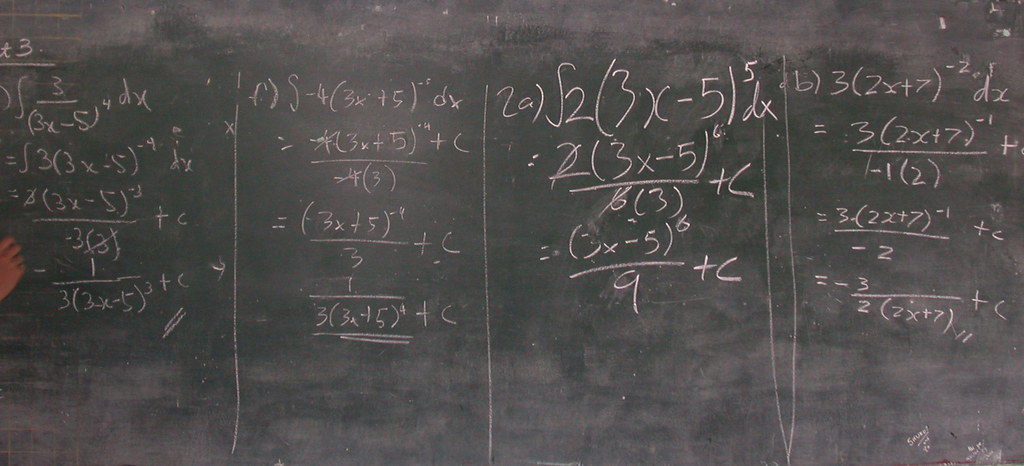 t 3.
) ∫ 3/(3x-5)^4 dx
= ∫ 3(3x-5)^-4 dx
= 3(3x-5)^-3 / -3(3) + c
- 1 / 3(3x-5)^3 + c
f.) ∫ -4(3x+5)^-5 dx
= -4(3x+5)^-4 / -4(3) + c
= (3x+5)^-4 / 3 + c
1 / 3(3x+5)^4 + c
2a) ∫ 2(3x-5)^5 dx
= 2(3x-5)^6 / 6(3) + c
= (3x-5)^6 / 9 + c
b) 3(2x+7)^-2 dx
= 3(2x+7)^-1 / -1(2) +
= 3(2x+7)^-1 / -2 + c
= -3 / 2(2x+7) + c